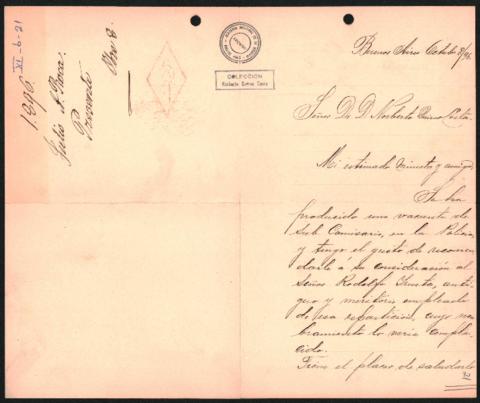 XI-6-21
1.896.
Julio A. Roca.
Presidente
Nov 8.
COLECCIÓN
Buenos Aires Octubre 8/96.
Señor Dr. D. Norberto Quirno Costa.
Mi estimado Ministro y amigo,
Se ha
producido una vacante de
Sub Comisario, en la Policia
y tengo el gusto de recomen
darle á su consideración al
Señor Rodolfo
guo y meritorio empleado
de esa repartición, cuyo nom
bramiento lo veria compla
cido.
Tiene el placer de saludarlo